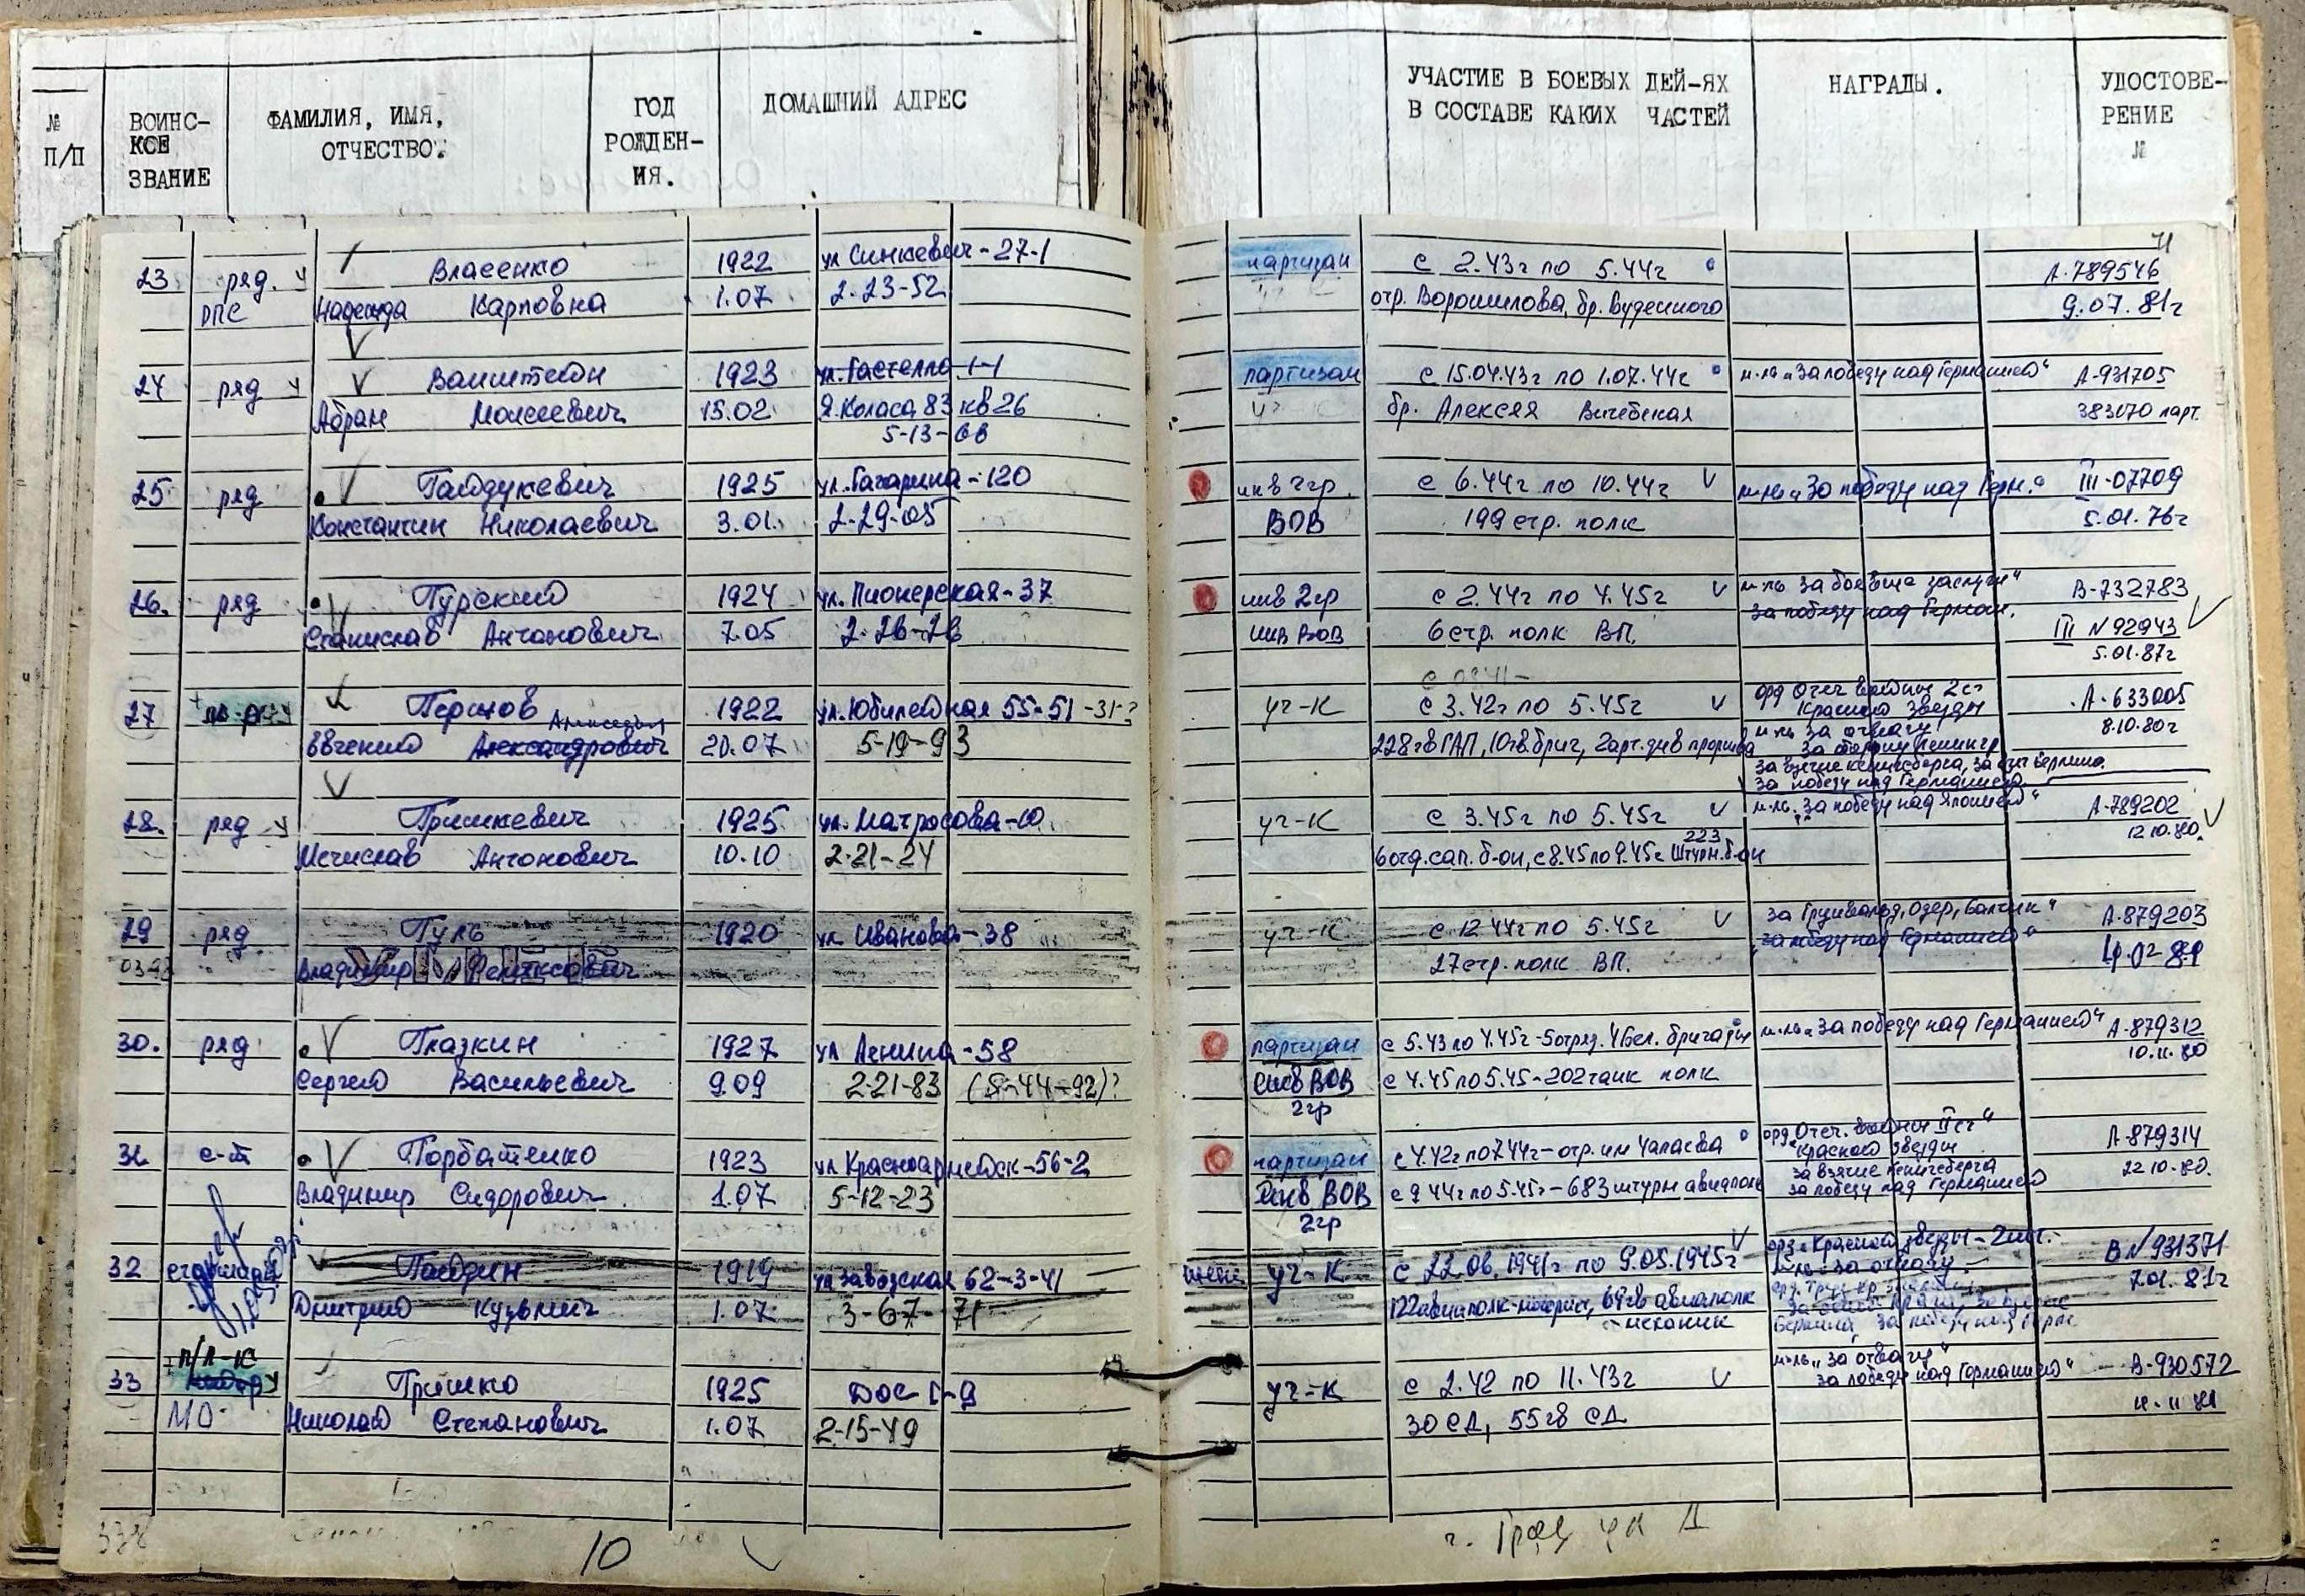 № П/П
ВОИНС-
КОЕ
ЗВАНИЕ
ФАМИЛИЯ, ИМЯ,
ОТЧЕСТВО.
ГОД
РОЖДЕН-
ИЯ.
ДОМАШНИЙ АДРЕС
УЧАСТИЕ В БОЕВЫХ ДЕЙ-ЯХ
В СОСТАВЕ КАКИХ ЧАСТЕЙ
НАГРАДЫ.
УДОСТОВЕ-
РЕНИЕ
№
23 ряд. Власенко 1922 ул Синкевич-27-1 партизан с 2.43г по 5.44г А-789546
Надежда Карповна 1.07 2-23-52 отр. Ворошилова, бр. Буденного 9.07.81г
24 ряд Вайнштейн 1923 ул. Гастелло 1-1 партизан с 15.04.43г по 1.07.44г м-ль "За победу над Германией" А-931705
Абрам Моисеевич 15.02 Я.Коласа 83 кв 26 уч-к бр. Алексея Витебская 383070 парт.
5-13-66
25 ряд Гайдукевич 1925 ул. Гагарина-120 инв 2гр. с 6.44г по 10.44г м-ль "За победу над Герм." III-07709
Константин Николаевич 3.01. 2-29-05 ВОВ 199 стр. полк 5.01.76г
26. ряд Гурский 1924 ул. Пионерская-37 инв 2гр с 2.44г по 4.45г м-ль за боевые заслуги" В-732783
Станислав Антонович 7.05 2-26-26 инв ВОВ 6 стр. полк ВП. за победу над Герман. III N 92943
5.01.87г
27 1922 ул. Юбилейная 55-51-31-? уч-к с 3.42г по 5.45г орд Отеч войны 2ст А-633005
Красной звезды
Евгений Александрович 20.07 5-19-93 м-ль за отвагу 8.10.80г
за взятие кенигсберга, за взят Берлина
за победу над Германией
28. ряд Гришкевич 1925 ул. Матросова-10 уч-к с 3.45г по 5.45г м-ль "За победу над Японией" А-789202
223
Мечислав Антонович 10.10 2-21-24 6 отд. сап. б-он, с 8.45 по 9.45г Штурм. б-он 12 10.80.
29 ряд. Гуль 1920 ул Иванова-38 уч-к с 12.44г по 5.45г за Грунвальд, Одер, Балтик" А-879203
Владимир Феликсович 27 стр. полк ВП. за победу над Германией" 4.02.81
30. ряд Глазкин 1927 ул Ленина-58 партизан с 5.43 по 4.45г-5 отряд. 4 Бел. бригады м-ль "За победу над Германией" А-879312
Сергей Васильевич 9.09 2-21-83 (5-44-92)? инв ВОВ с 4.45 по 5.45-202 танк полк 10.11.80
2гр
31 с-т Горбатенко 1923 ул Красноармейск-56-2 партизан с 4.42г по 7.44г-отр. им Чапаева орд. Отеч. войны II ст" А-879314
Красной звезды
за взятие кенигсберга 22 10.80.
Владимир Сидорович 1.07 5-12-23 инв ВОВ с 9.44г по 5.45г-683 штурм авиаполк за победу над Германией
2гр
32 старшина Гайдин 1919 ул заводская 62-3-41 уч-к с 22.06.1941г по 9.05.1945г орд. Красной звезды-2шт. В N 931371
м-ль за отвагу. 7.01.81г
Дмитрий Кузьмич 1.07 3-67-71 122 авиаполк, 69 гв авиаполк
механик
п/п-к м-ль "за отвагу"
33 Гришко 1925 ДОС 1-9 уч-к с 2.42 по 11.43г за победу над Германией" В-930572
МО Николай Степанович 1.07 2-15-49 30 СД, 55 гв СД 11.11 81
338
10